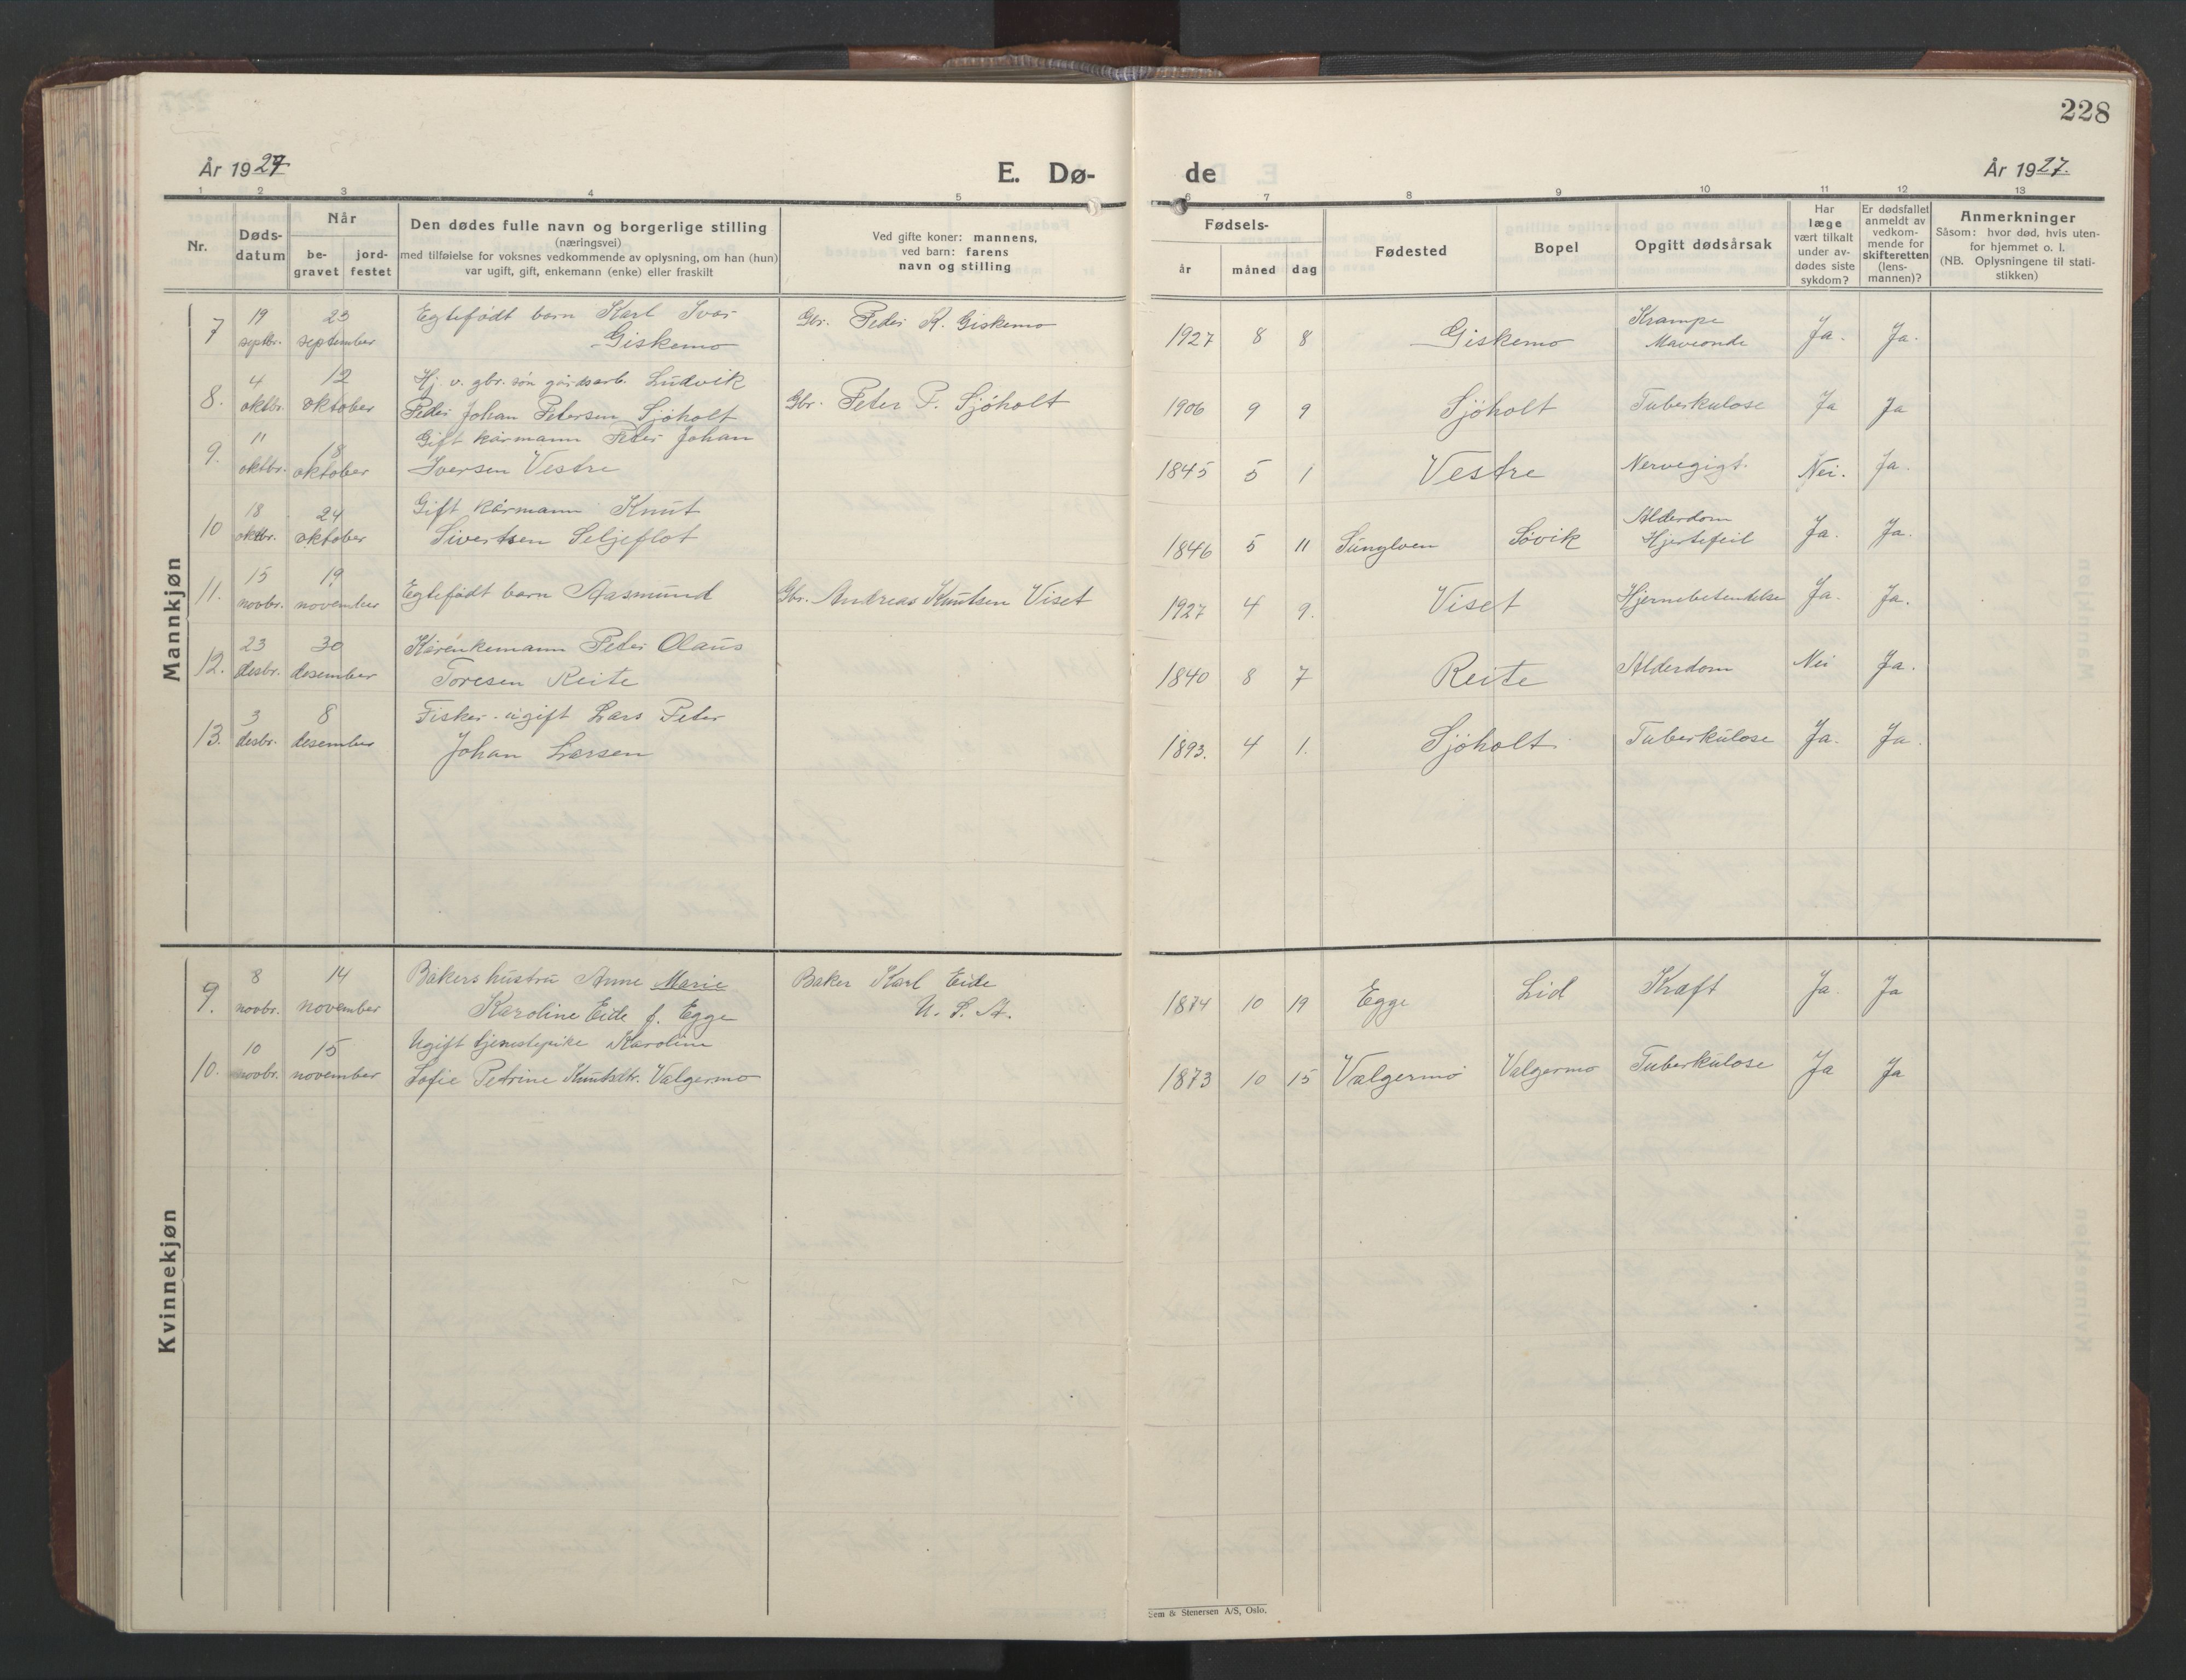 228
År 1927
E. Dø-
de
År 1927.
1 2 3 4 5 6 7 8 9 10 11 12 13
Nr.
Døds-
datum
Når
be-
gravet
jord-
festet
Den dødes fulle navn og borgerlige stilling
(næringsvei)
med tilføielse for voksnes vedkommende av oplysning, om han (hun)
var ugift, gift, enkemann (enke) eller fraskilt
Ved gifte koner: mannens,
ved barn: farens
navn og stilling
Fødsels-
år
måned
dag
Fødested
Bopel
Opgitt dødsårsak
Har
læge
vært tilkalt
under av-
dødes siste
sykdom?
Er dødsfallet
anmeldt av
vedkom-
mende for
skifteretten
(lens-
mannen)?
Anmerkninger
Såsom: hvor død, hvis uten-
for hjemmet o. l.
(NB. Oplysningene til stati-
stikken)
Mannkjøn
7 19 septbr. 23 september Egtefødt barn Karl Ivar
Giskemo
Gbr. Peder K. Giskemo
1927 8 8 Giskemo Krampe
Maveonde
Ja. Ja.
8. 4 oktbr. 12 oktober Hj. v. gbr. søn gårdsarb. Ludvik
Peder Johan Petersen Sjøholt
Gbr. Peter P. Sjøholt
1906 9 9 Sjøholt Tuberkulose Ja Ja
9. 11 oktbr. 18 oktober Gift kårmann Peder Johan
Iversen Vestre
1845 5 1 Vestre Nervegigt. Nei. Ja.
10 18 oktbr. 24 oktober Gift kårmann Knut
Sivertsen Seljeflot
1846 5 11 Søvik Alderdom
Hjertefeil
Ja. Ja.
11. 15 novbr. 19 november Egtefødt barn Aasmund
Gbr. Andreas Knutsen Viset
1927 4 9. Viset Hjernebetendelse Ja. Ja.
12. 23 desbr. 30 desember Kårenkemann Peder Olaus
Toresen Reite
1840 8 7 Reite Alderdom Nei Ja.
13. 3 desbr. 8 desember Fisker ugift Lars Peter
Johan Larsen
1893. 4 1. Sjøholt Tuberkulose Ja. Ja.
Kvinnekjøn
9. 8 novbr. 14 november Bakers hustru Anne Marie
Karoline Eide f. Egge
Baker Karl Eide
U. S. A.
1874 10 19 Egge Lid Kræft Ja Ja
10. 10 novbr. 15 november Ugift tjenestepike Karoline
Sofie Petrine Knutsdtr. Valgermo
1873 10 15 Valgermo Valgermo Tuberkulose Ja Ja
Sem & Stenersen A/S, Oslo.